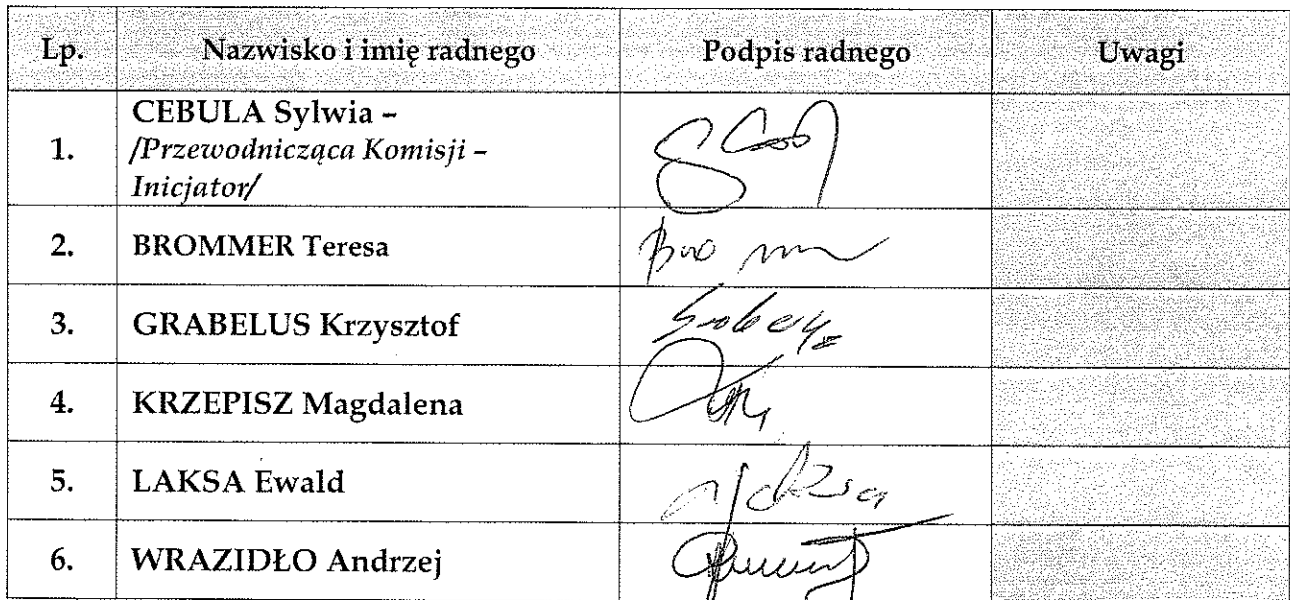 Lp. Nazwisko i imię radnego Podpis radnego Uwagi
CEBULA Sylwia –
1. /Przewodnicząca Komisji –
Inicjator/
2. BROMMER Teresa
3. GRABELUS Krzysztof
4. KRZEPISZ Magdalena
5. LAKSA Ewald
6. WRAZIDŁO Andrzej